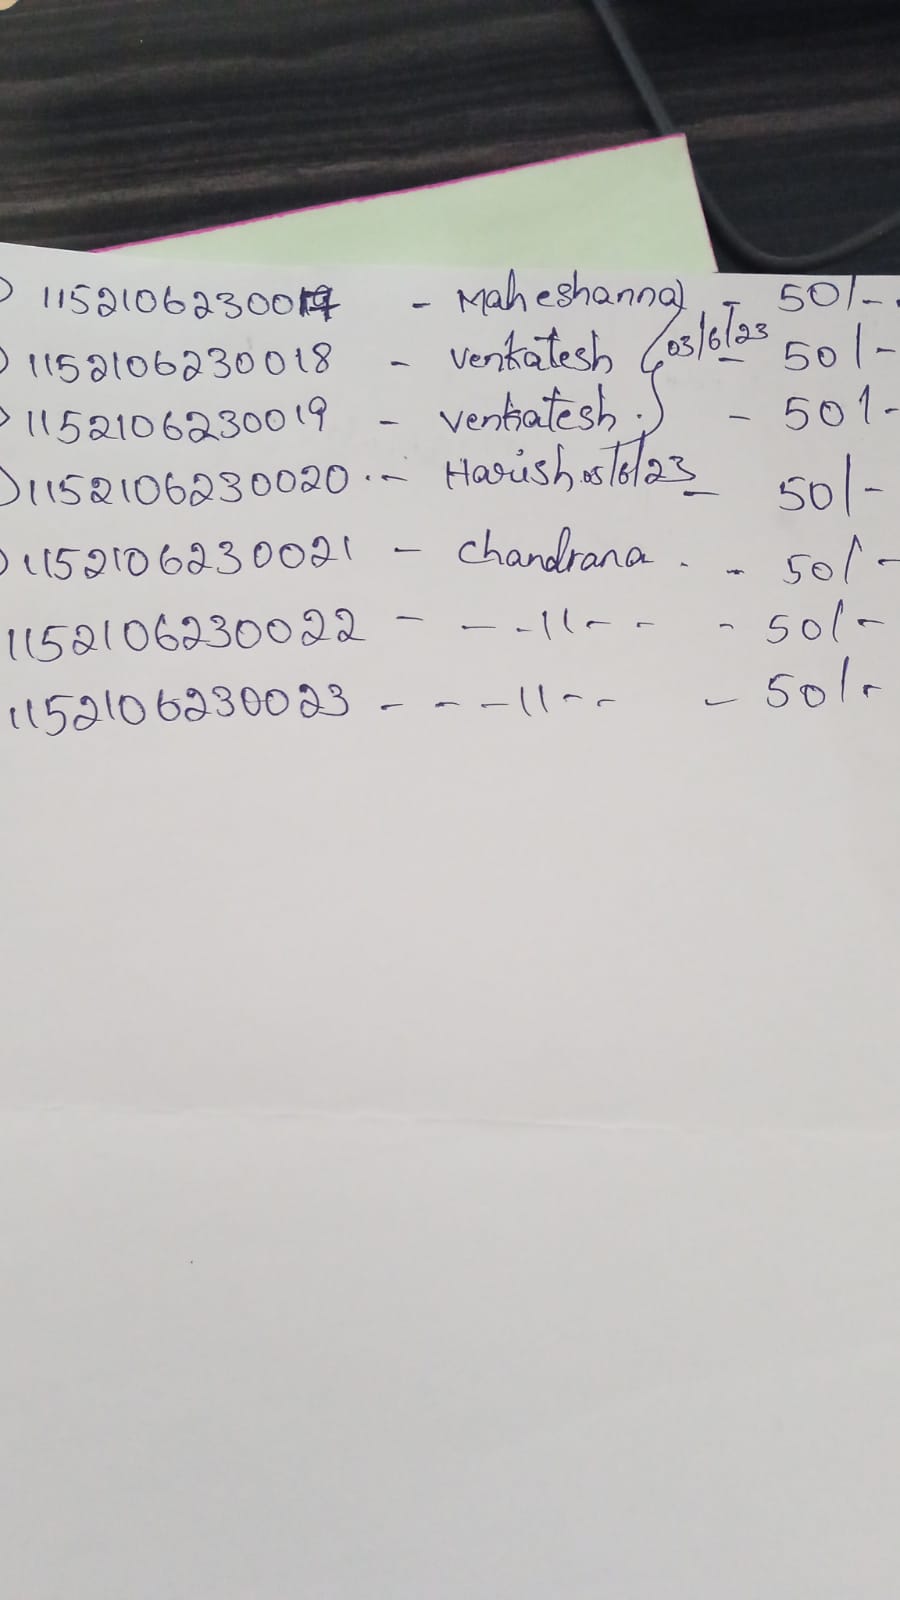 1152106230017 - Maheshanna - 50/-
1152106230018 - Venkatesh 03/6/23 - 50/-
1152106230019 - Venkatesh. - 50/-
1152106230020 .- Harish. 05/6/23 - 50/-
1152106230021 - Chandrana . - 50/-
1152106230022 - - - -11- - - 50/-
1152106230023 - - - -11- - - 50/-